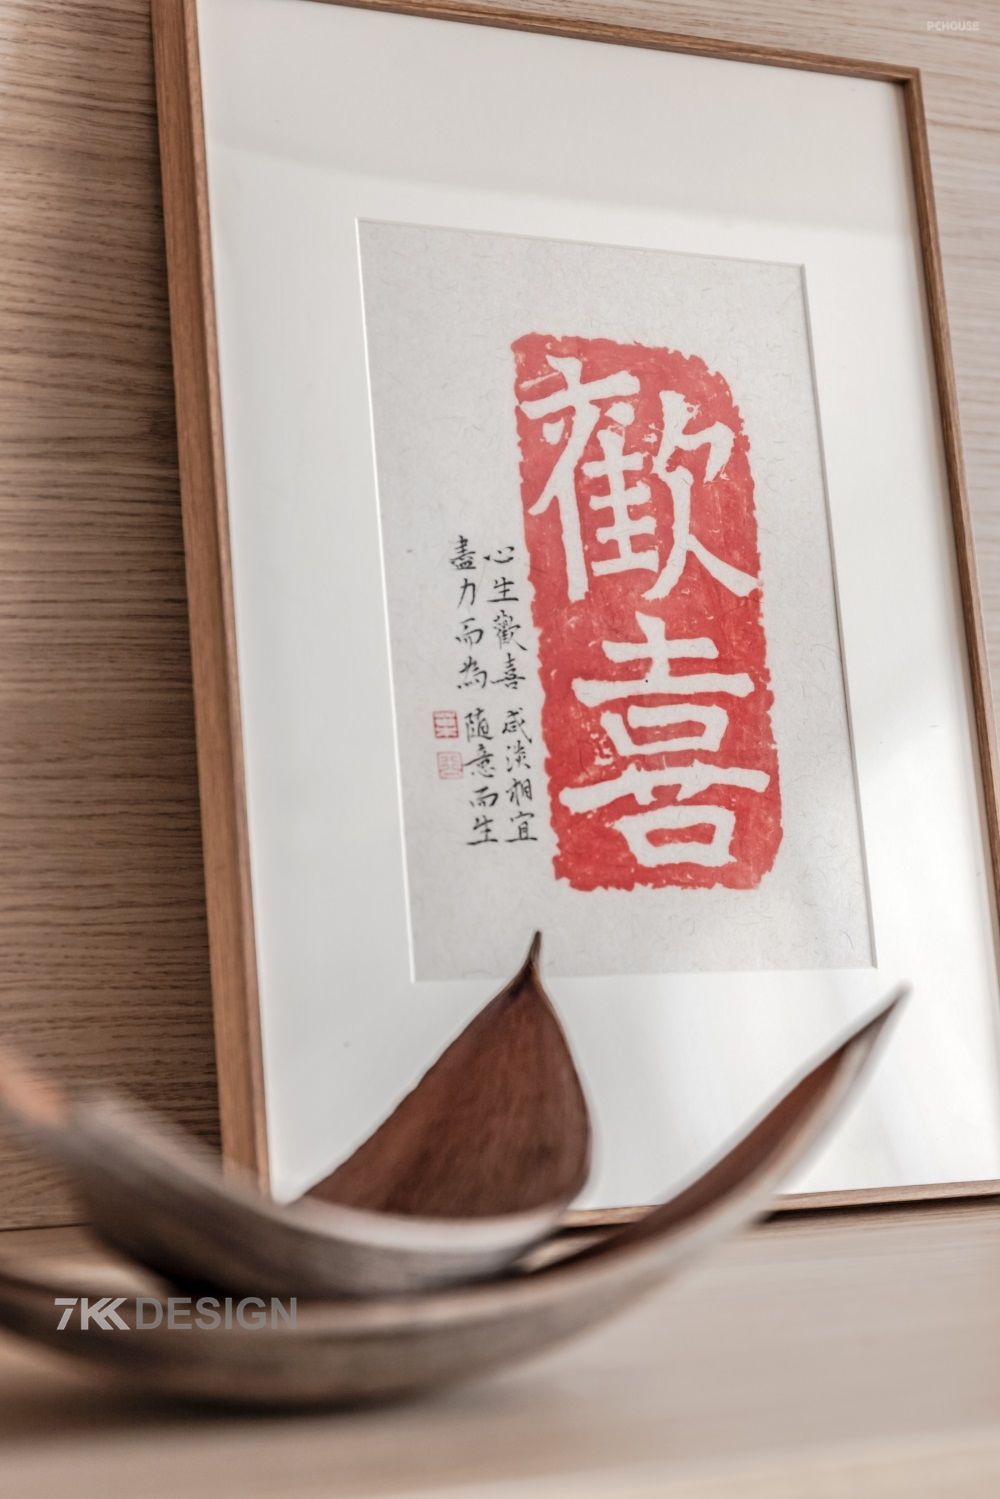 PCHOUSE
歡喜
心生歡喜 咸淡相宜
盡力而為 随意而生
7KK DESIGN